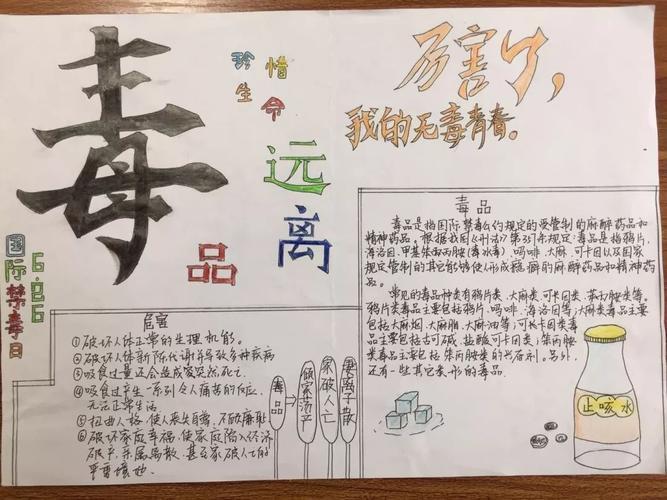 毒品
珍惜生命
远离
厉害了，
我的无毒青春。
国际禁毒日
6.26
危害
①破坏人体正常的生理机能。
②破坏人体新陈代谢并导致多种疾病
③吸食过量还会造成突然死亡.
④吸食过产生一系列令人痛苦的反应,
无法正常生活
⑤扭曲人格,使人丧失自尊、不顾廉耻
⑥破坏家庭幸福,使家庭陷入经济
破产、亲属离散、甚至家破人亡的
毒品
倾家荡产
家破人亡
妻离子散
毒品
毒品是指国际禁毒公约规定的受管制的麻醉药品和
精神药品。根据我国《刑法》第357条规定:毒品是指鸦片、
海洛因、甲基苯丙胺(毒冰毒)、吗啡、大麻、可卡因以及国家
规定管制的其它能够使人形成瘾癖的麻醉药品和精神药
品。
常见的毒品种类有鸦片类、大麻类、可卡因类、苯丙胺类等。
鸦片类毒品主要包括鸦片、吗啡、海洛因等;大麻类毒品主要
包括大麻烟、大麻脂、大麻油等;可卡因类毒
品主要包括古可碱、盐酸可卡因类;苯丙胺
类毒品主要包括苯丙胺类的兴奋剂。另外,
还有一些其它类形的毒品.
止咳水